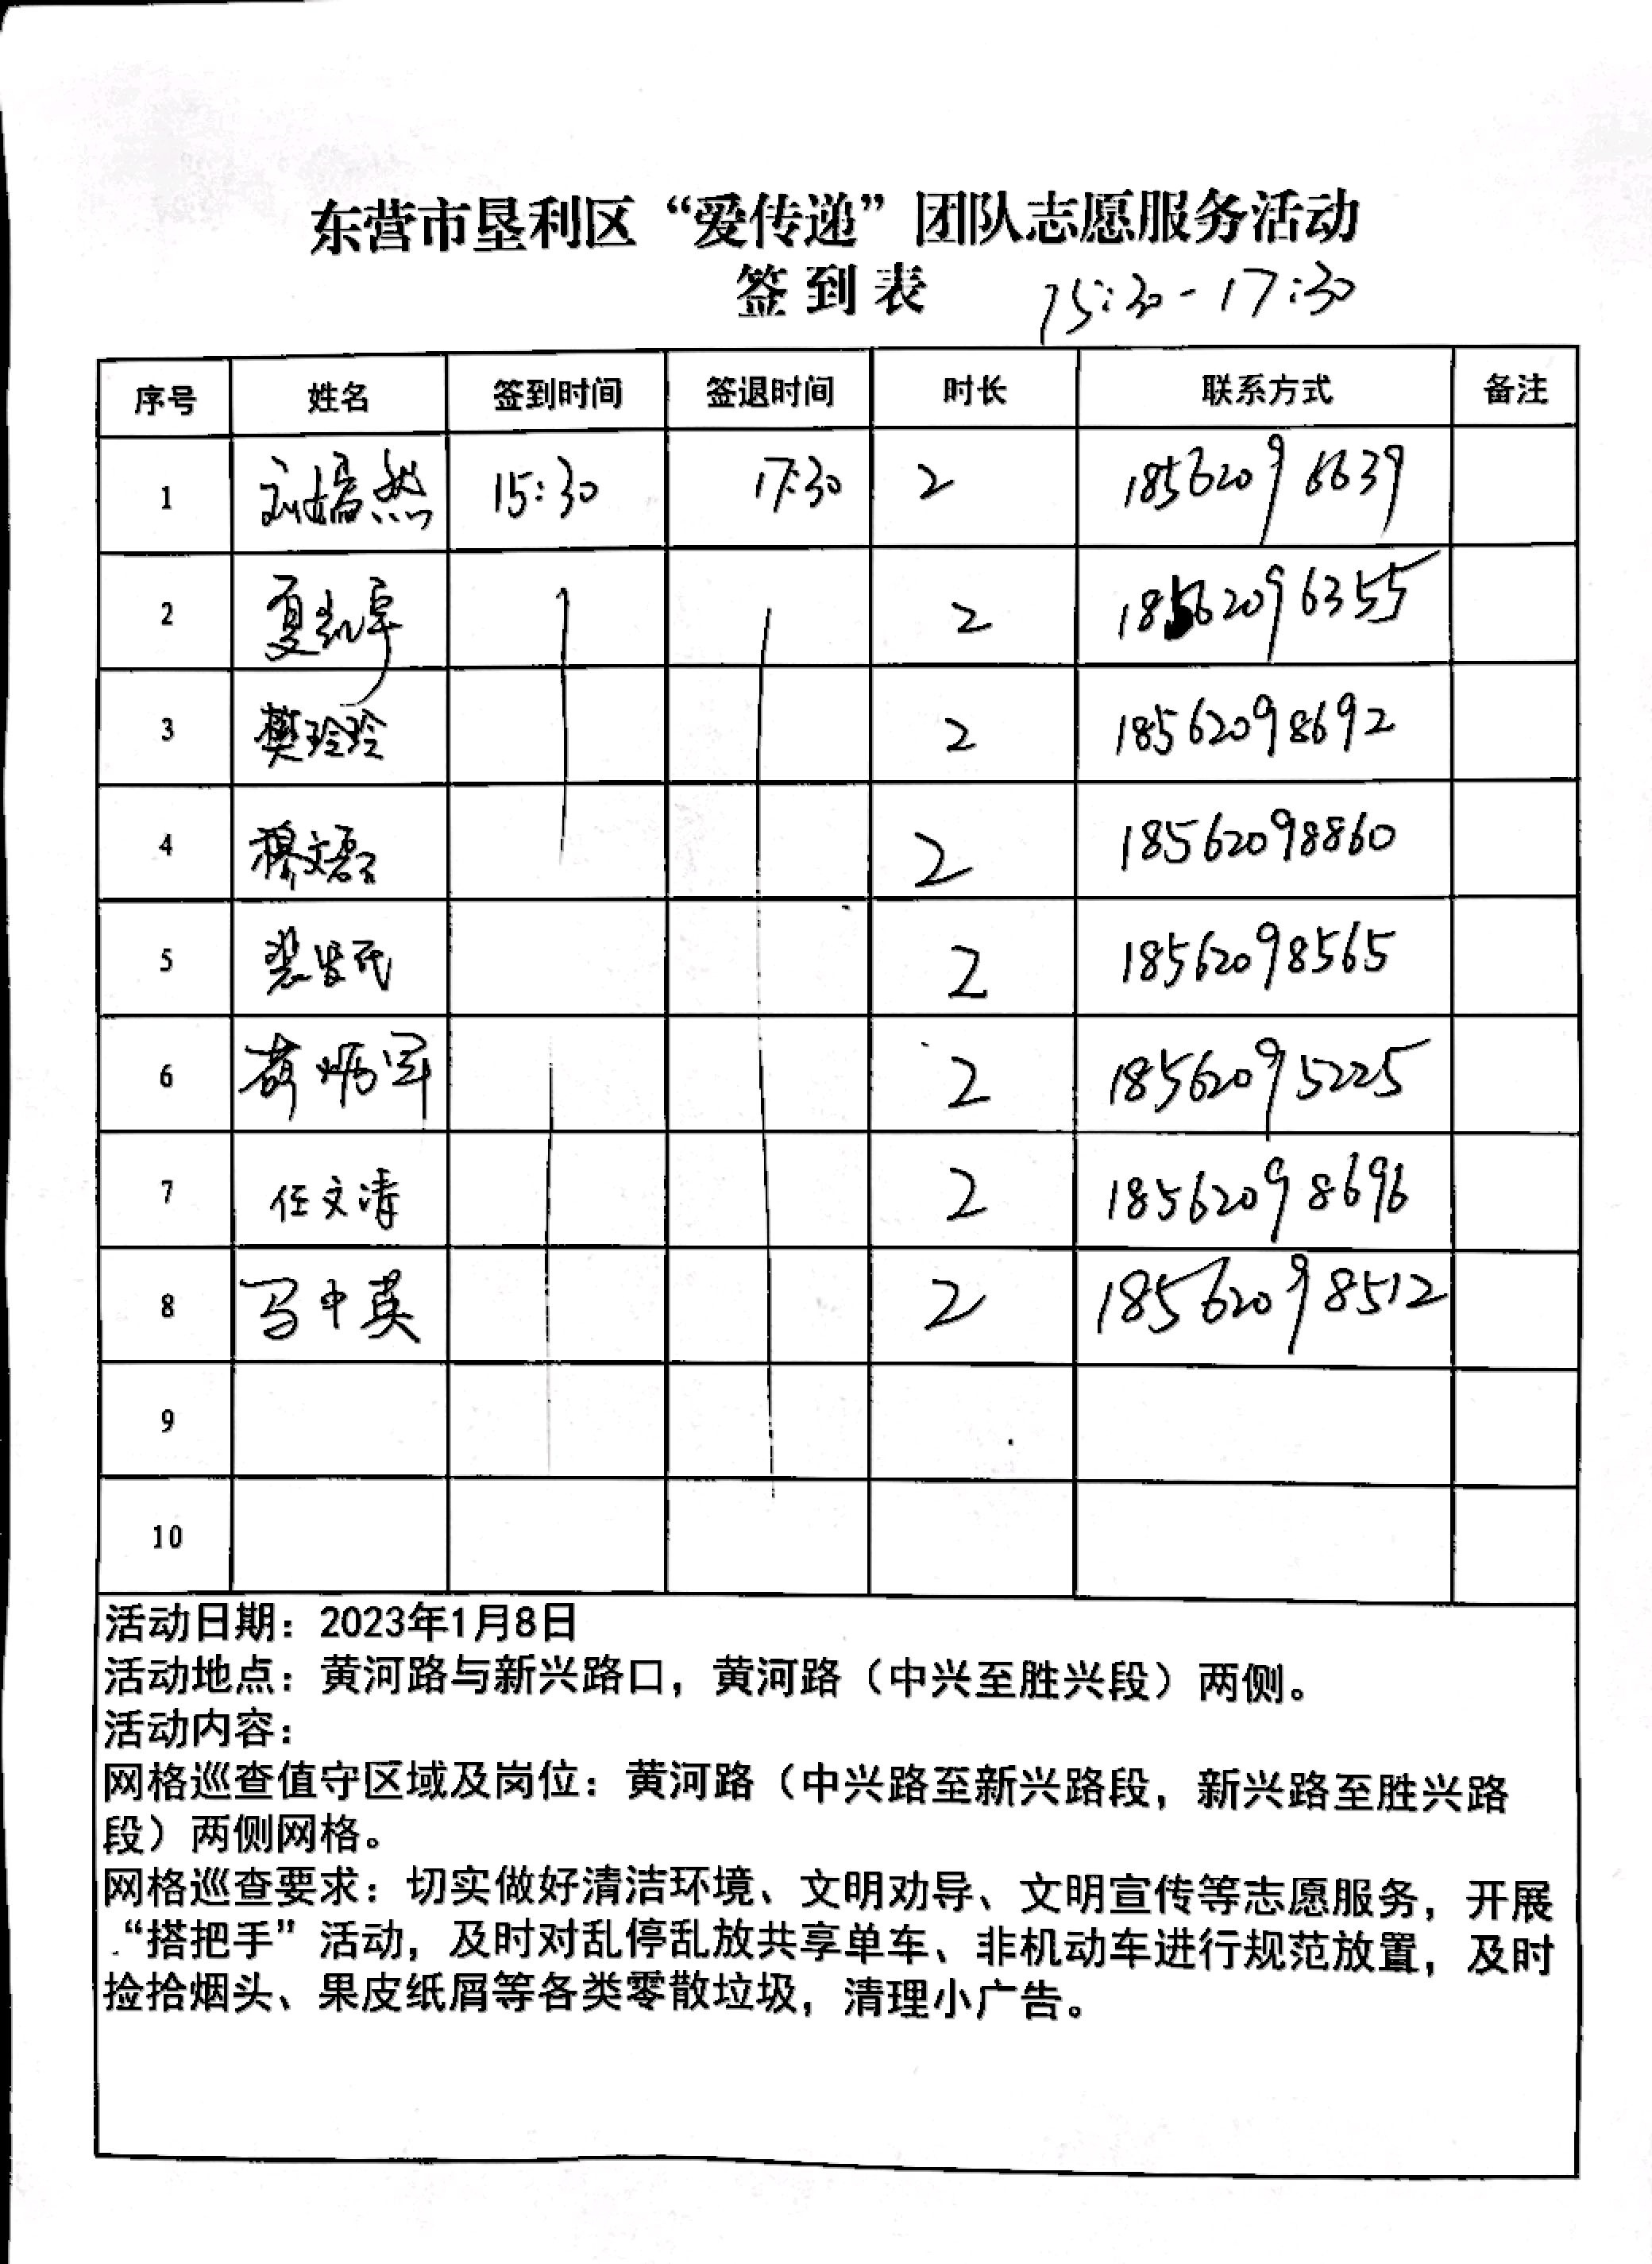 东营市垦利区“爱传递”团队志愿服务活动
签到表 15:30-17:30
序号 姓名 签到时间 签退时间 时长 联系方式 备注
1 15:30 17:30 2 18562096639
2 2 18562096355
3 樊玲玲 2 18562098692
4 穆文磊 2 18562098860
5 2 18562098565
6 2 18562095225
7 任文清 2 18562098696
8 马中英 2 18562098512
9
10
活动日期：2023年1月8日
活动地点：黄河路与新兴路口，黄河路（中兴至胜兴段）两侧。
活动内容：
网格巡查值守区域及岗位：黄河路（中兴路至新兴路段，新兴路至胜兴路
段）两侧网格。
网格巡查要求：切实做好清洁环境、文明劝导、文明宣传等志愿服务，开展
“搭把手”活动，及时对乱停乱放共享单车、非机动车进行规范放置，及时
捡拾烟头、果皮纸屑等各类零散垃圾，清理小广告。